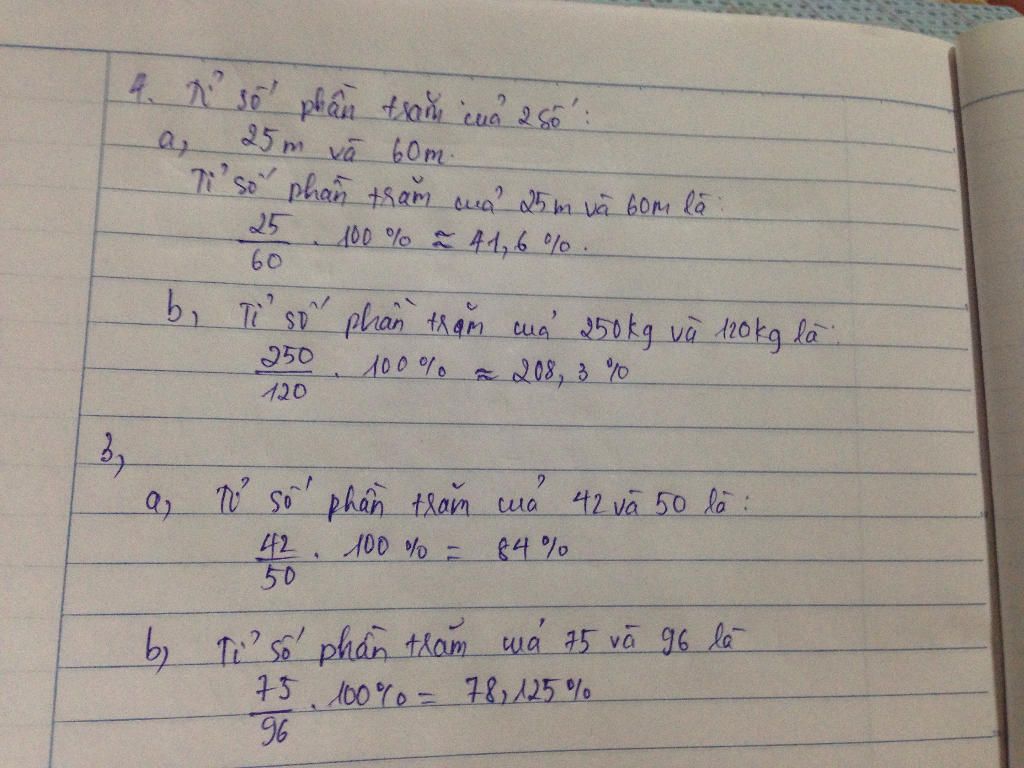 4. Tỉ số phần trăm của 2 số:
a, 25m và 60m.
Tỉ số phần trăm của 25m và 60m là:
25/60 . 100% ≈ 41,6%.
b, Tỉ số phần trăm của 250kg và 120kg là:
250/120 . 100% ≈ 208,3%
3,
a, Tỉ số phần trăm của 42 và 50 là:
42/50 . 100% = 84%
b, Tỉ số phần trăm của 75 và 96 là
75/96 . 100% = 78,125%